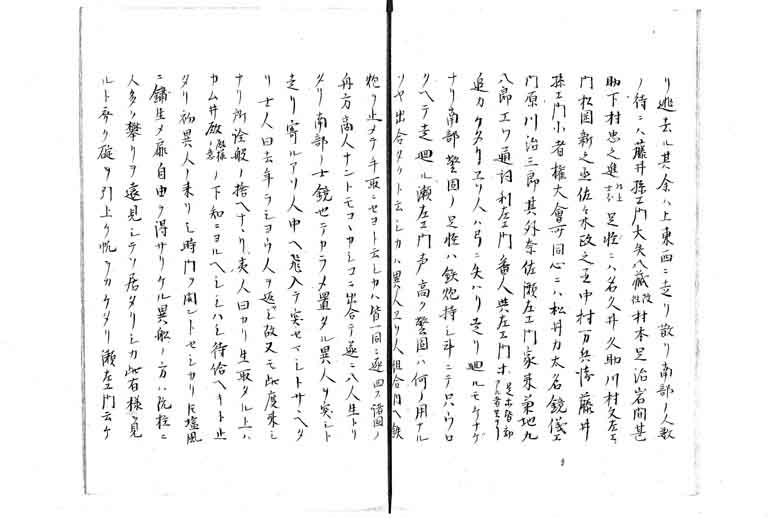 リ逃去ル其余ハ上東西ニ走リ散リ南部ノ人数
ノ侍ニハ藤井孫エ門大矢八蔵 村本足治岩間甚
助下村忠之進 足軽ニハ名久井久助川村文左エ
門松田新之丞佐々木政之丞中村万兵衛藤井
孫エ門小者権大會可同心ニハ松井力太名鏡儀エ
門原川治三郎其外奈佐瀬左エ門家来菊地九
八郎エソ通詞利左エ門番人與左エ門
追カケタリエソ人ハ弓ニ矢ハリ走リ廻ルモケナゲ
ナリ南部警固ノ足軽ハ鉄炮持シ斗ニテ只ハウロ
タヘテ走廻ル瀬左エ門声高ク警固ハ何ノ用アル
ソヤ出合タケト云シカハ異人エソ人組合内ヘ鉄
炮ヲ止メテ手取ニセヨト云シカハ皆一同ニ逐回ス諸国ノ
舟方商人ナントモコヽカシコニ出合テ遂ニ八人生トリ
タリ南部ノ士鏡也テカラメ置タル異人ヲ突ント
走リ寄ルアリ人中ヘ飛入テ突セマシトサヽヘタ
リ士人曰去年ラショワ人ヲ返シ故又モ此度来シ
ナリ所詮殺シ捨ヘナリ夷人曰カリ生取タル上ハ
カム井殿 ノ下知ニヨルヘシシハシ待給ヘト止
タリ初異人ノ乗リシ時門ヲ開ントセシカリ氏塩風
ニ鏽生メ扉自由ヲ得サリケル異船ノ方ハ帆柱ニ
人多ク攀リヲ遠見シテソ居タリシカ此有様ヲ見
ルト斉ク碇ヲ引上ケ帆ヲカケタリ瀬左エ門云ケ